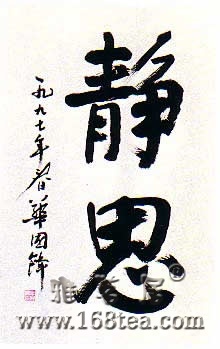 静思
一九九七年春
華國鋒
雅茗居®
www.168tea.com